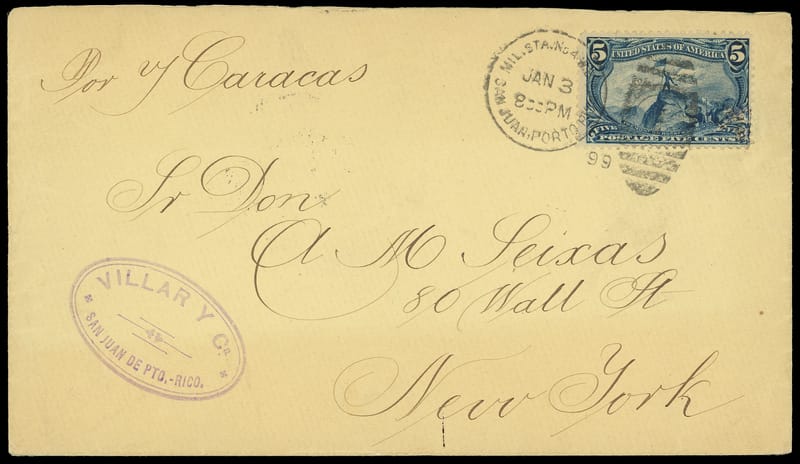 Por
Caracas
MIL. STA. No 4
JAN 3
8 PM
SAN JUAN, PORTO
99
5 UNITED STATES OF AMERICA 5
FIVE
POSTAGE FIVE CENTS
Sr Don
A M Seixas
80 Wall St
New York
VILLAR Y Ca.
SAN JUAN DE PTO.-RICO.